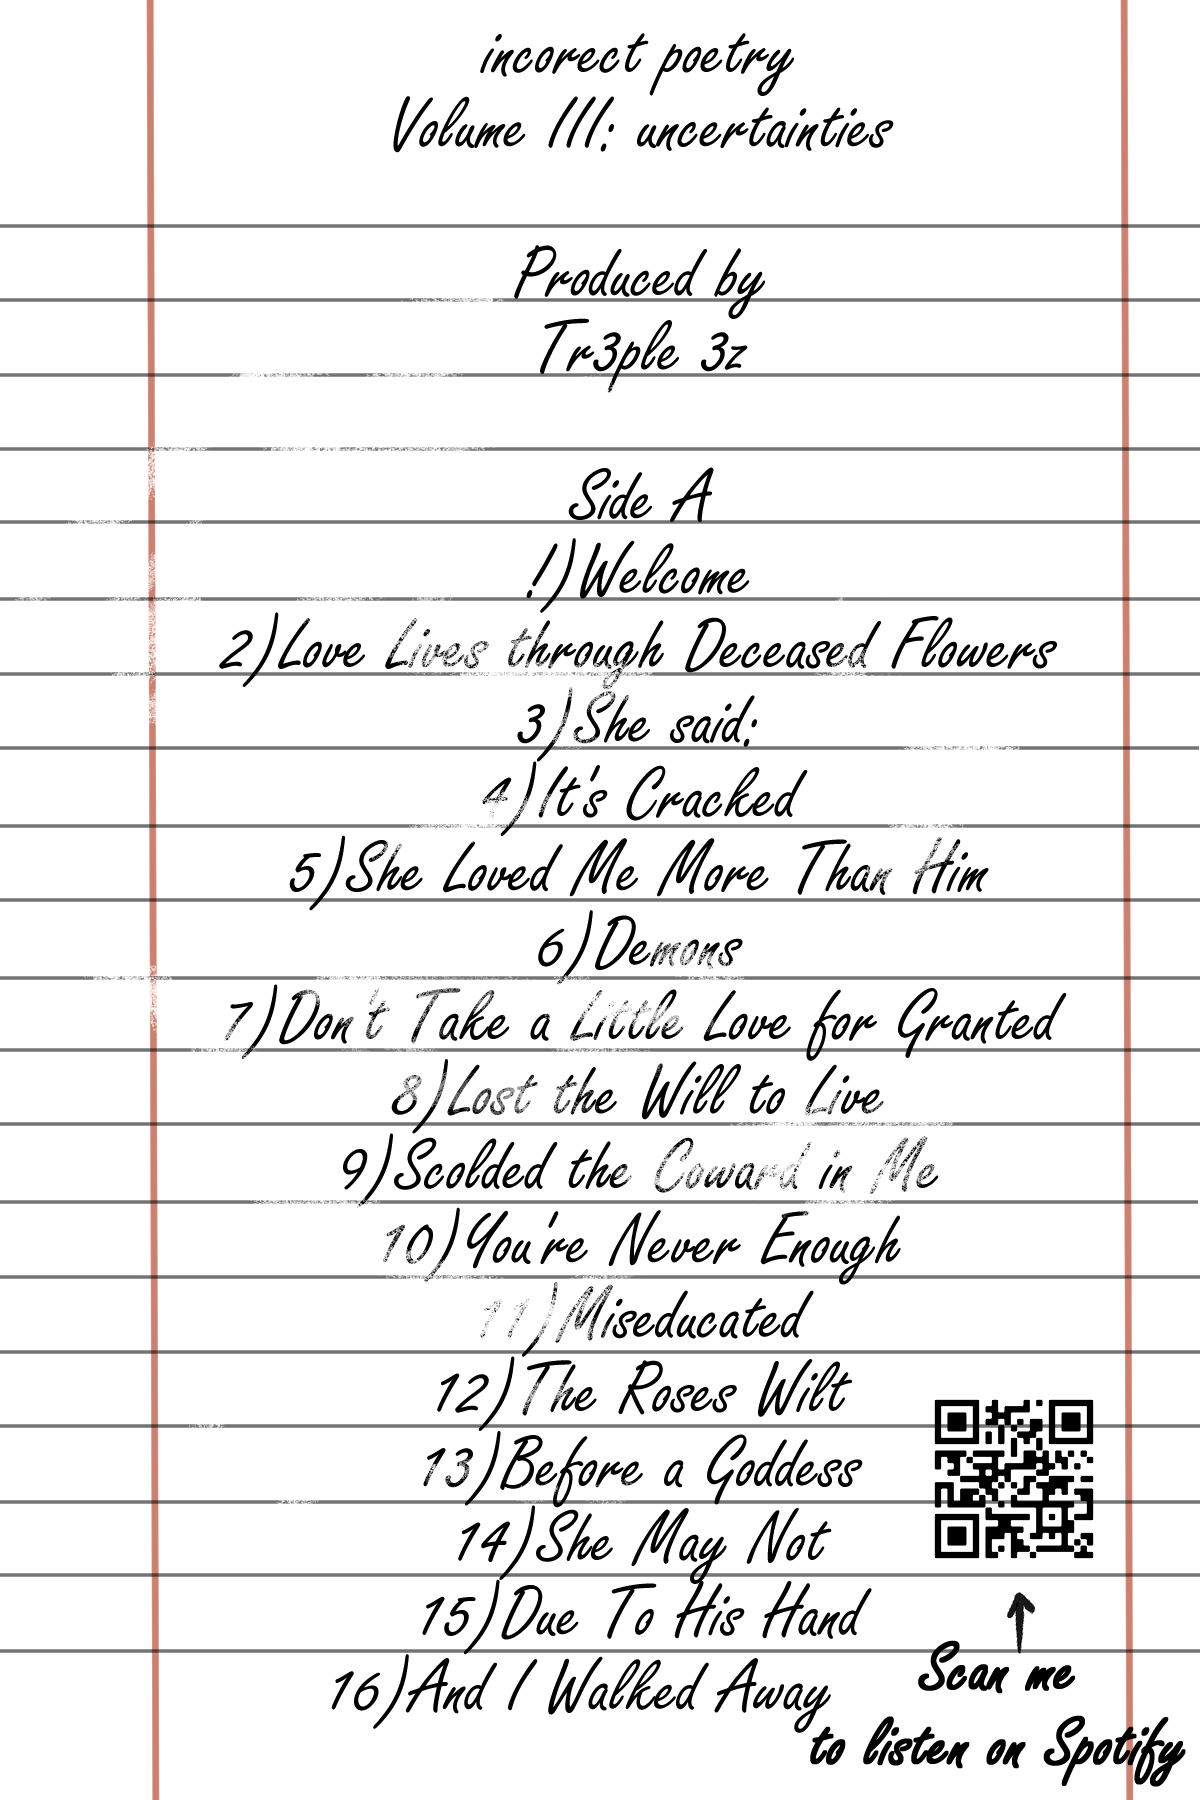 incorect poetry
Volume III: uncertainties
Produced by
Tr3ple 3z
Side A
!)Welcome
2)Love Lives through Deceased Flowers
3)She said:
4)It's Cracked
5)She Loved Me More Than Him
6)Demons
7)Don't Take a Little Love for Granted
8)Lost the Will to Live
9)Scolded the Coward in Me
10)You're Never Enough
11)Miseducated
12)The Roses Wilt
13)Before a Goddess
14)She May Not
15)Due To His Hand
16)And I Walked Away
Scan me
to listen on Spotify